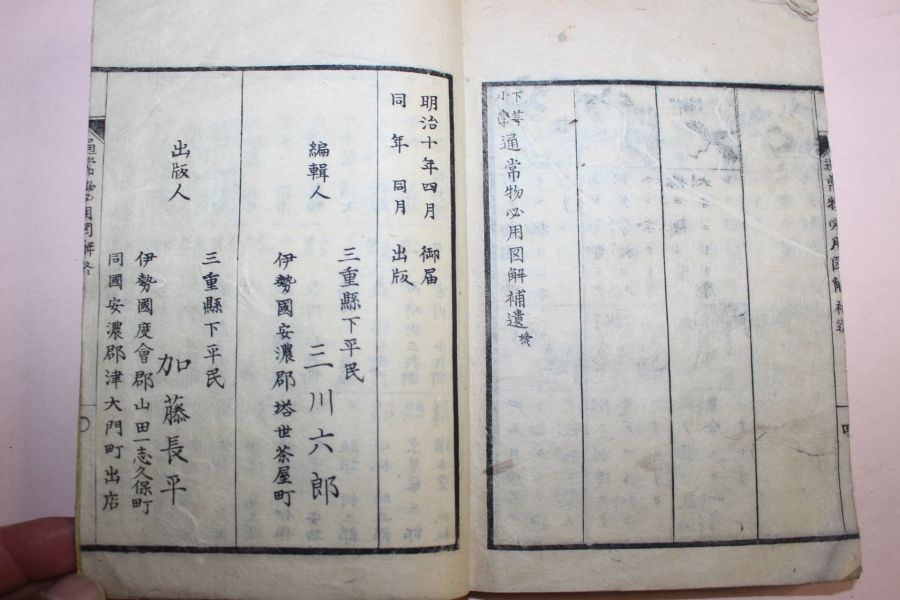 通常物必用図解補遺 四
下等小學 通常物必用図解補遺 終
明治十年四月 御届
同年 同月 出版
三重縣下平民
編輯人 三川六郎
伊勢國安濃郡塔世茶屋町
三重縣下平民
出版人 加藤長平
伊勢國度會郡山田一志久保町
同國安濃郡津大門町出店
通常物必用図解 終